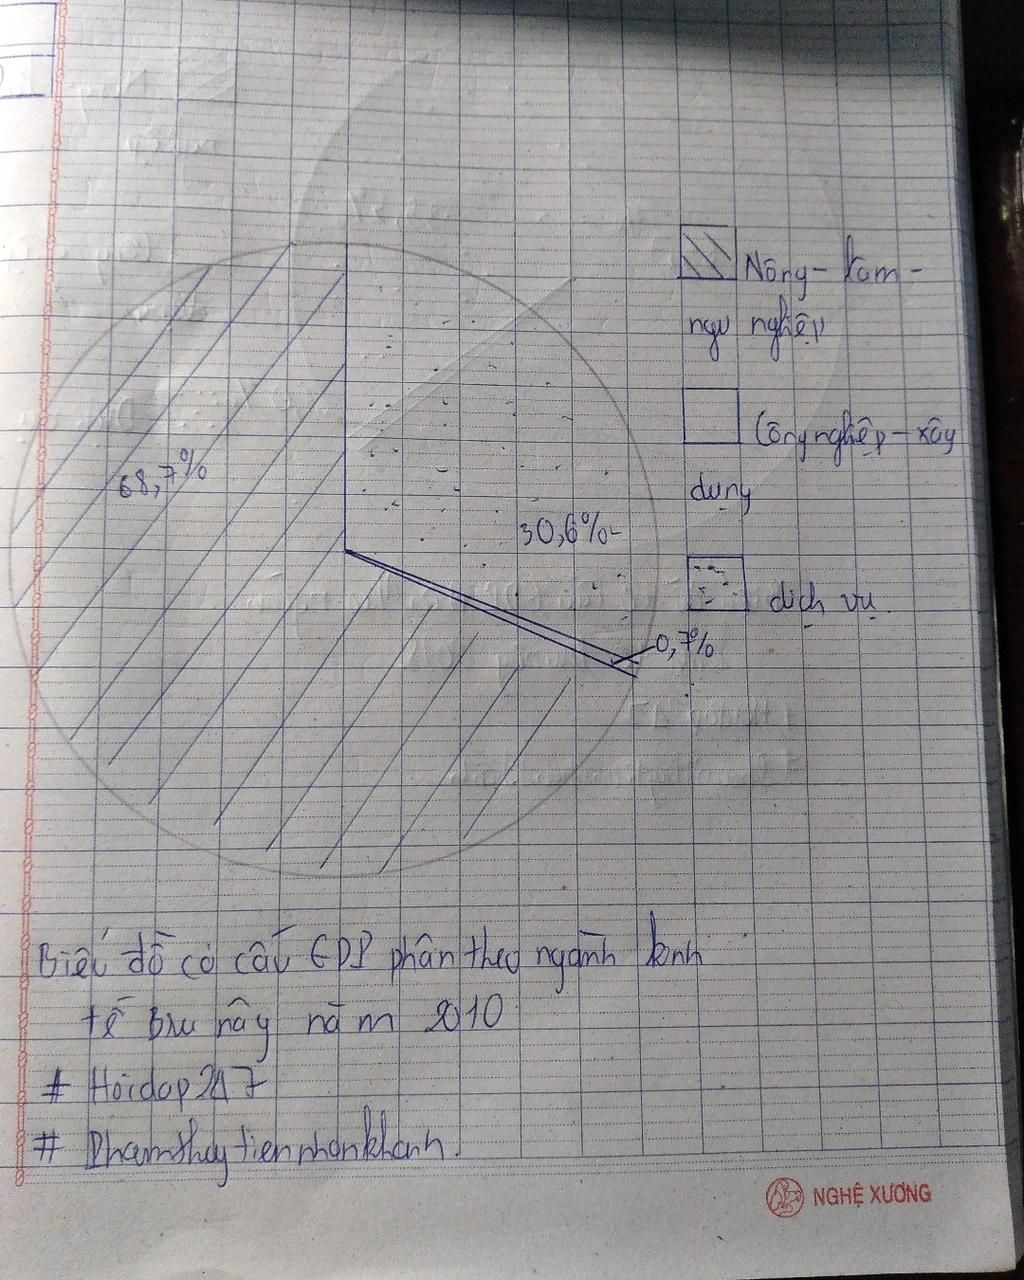 68,7%
30,6%
0,7%
Nông - Lâm -
ngư nghiệp
Công nghiệp - xây
dựng
dịch vụ.
Biểu đồ cơ cấu GDP phân theo ngành kinh
tế Bru nây năm 2010
# Hoidap247
# Phamthuytiennhankhanh.
NGHỆ XƯƠNG